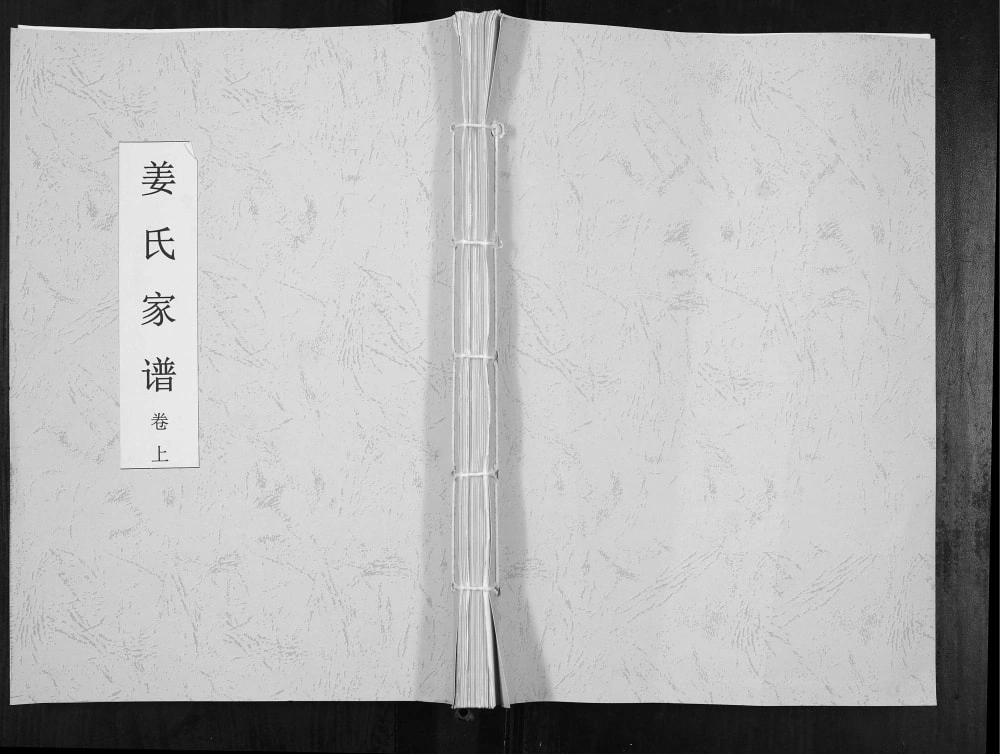 姜氏家谱卷上